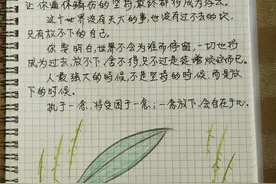 让你遍体鳞伤的坚持最终都将成为浮云
这个世界没有天大的事,也没有过不去的坎,
只有放不下的自己。
你要明白,世界不会为谁而停留,一切也将
成为过去,放不下,舍不得,只不过是徒增烦恼而已。
人最强大的时候,不是坚持的时候,而是放
下的时候。
执于一念,将受困于一念;一念放下,会自在于心。